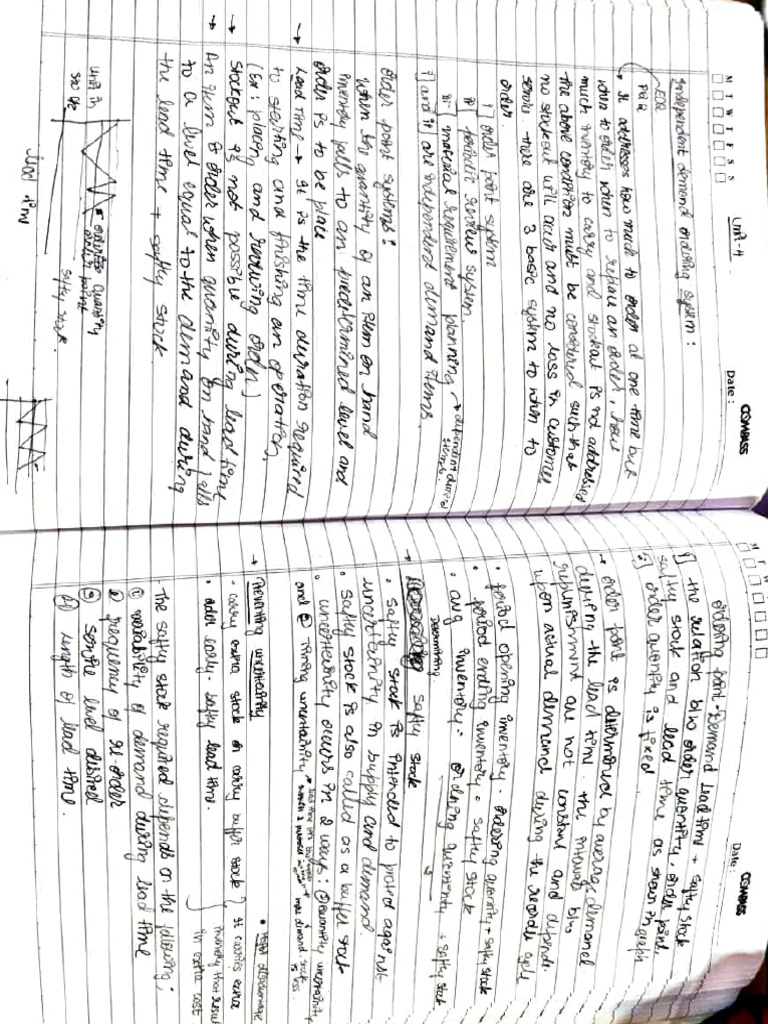 M T W T F S S
Unit-4
Date :
COMPASS
Independent demand ordering system :
EOQ
POQ
→ It addresses how much to order at one time but
when to order when to replace an order, how
much inventory to carry and stockout is not addressing
the above condition must be considered such that
no stockout will occur and no loss in customer
service. there are 3 basic system to when to
order
i] order point system
ii] periodic review system.
iii] material requirement planning → depending demand items.
i] and ii] are independent demand items.
order point systems :
when the quantity of an item on hand
inventory falls to an predetermined level and
order is to be place
→ Lead time → It is the time duration required
to starting and finishing an operation
(Ex : placing and receiving order)
→ Stockout is not possible during lead time
→ An item is order when quantity on hand falls
to a level equal to the demand during
the lead time + safty stock
unit in
order point
quantity
safty stock
lead time
M T W
Date :
COMPASS
ordering point = Demand lead time + safty stock
the relation b/w order quantity, order point,
safty stock and lead time as shown in graph
order quantity is fixed
→ order point is determined by average demand
during the lead time. the intervals b/w
replinishment are not constant and depends
upon actual demand during the reorder cycle
• period opening inventory = ordering quantity + safty stock
• period ending inventory = safty stock
• avg inventory = ordering quantity + safty stock
2
→ Determining safty stock
• safty stock is intended to protect against
uncertainity in supply and demand.
• safty stock is also called as a buffer stock
• uncertainity occurs in 2 ways : ① quantity uncertainity
and ② timing uncertainity
more demand stock is less
→ Preventing uncertainity
• carry extra stock or carry buffer stock } It carries extra
• order early - safty lead time. } inventory that result
in extra cost
• disadvantage
- The safty stock required depends on the following ;
① variability of demand during lead time
② frequency of re-order
③ service level desired
④ length of lead time.